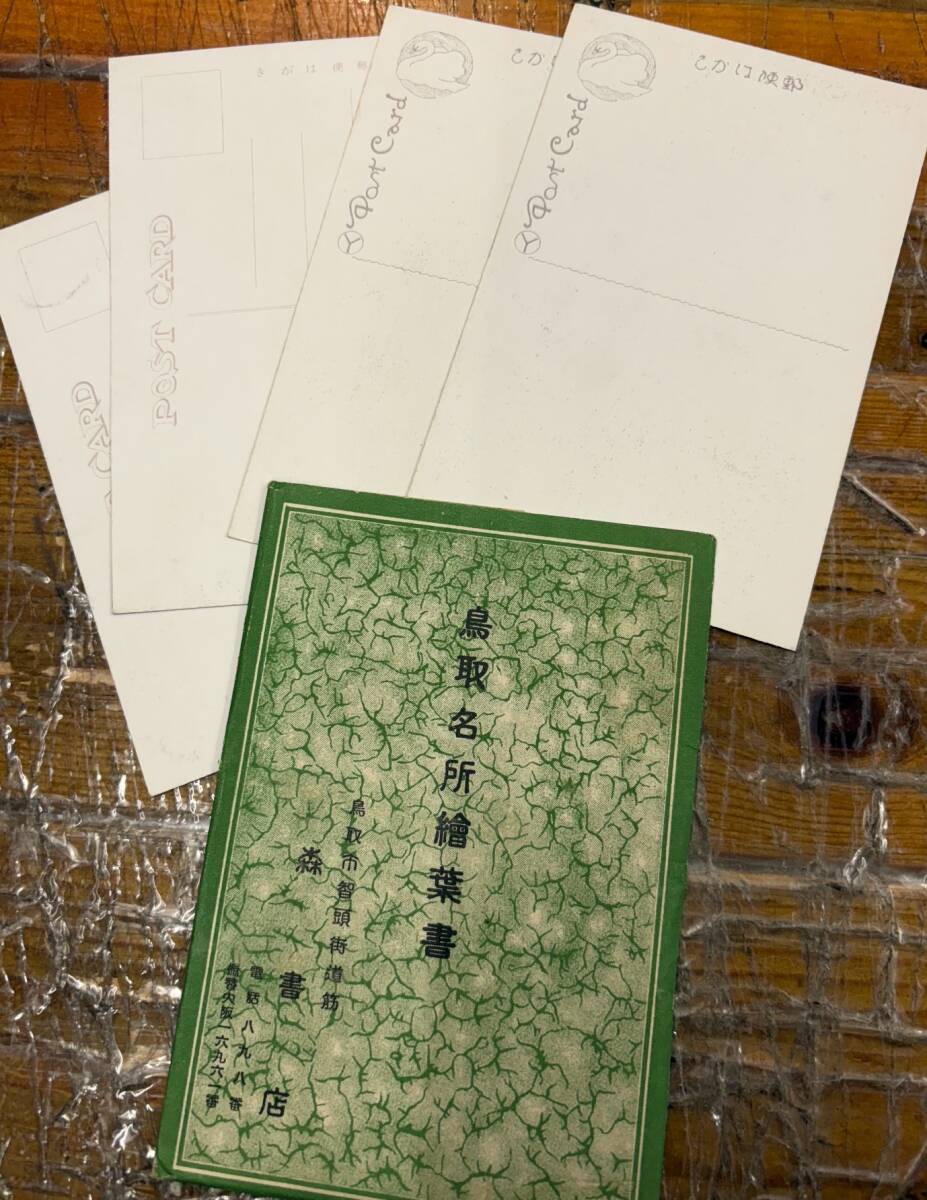 CARD
きがは便郵
POST CARD
きか
Post Card
きかは便郵
Post Card
鳥取名所繪葉書
鳥取市智頭街道筋
森書店
電話八九八番
振替大阪一六九六一番